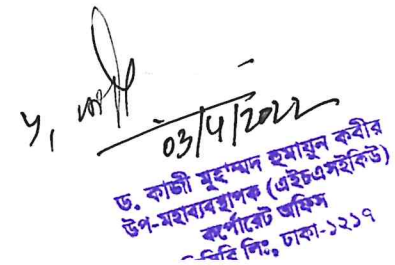 03/4/2022
ড. কাজী মুহাম্মদ হুমায়ুন কবীর
উপ-মহাব্যবস্থাপক (এইচএসইকিউ)
কর্পোরেট অফিস
লিঃ, ঢাকা-১২১৭